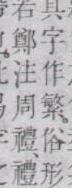 其字作繁。俗形
若鄭注周禮禮